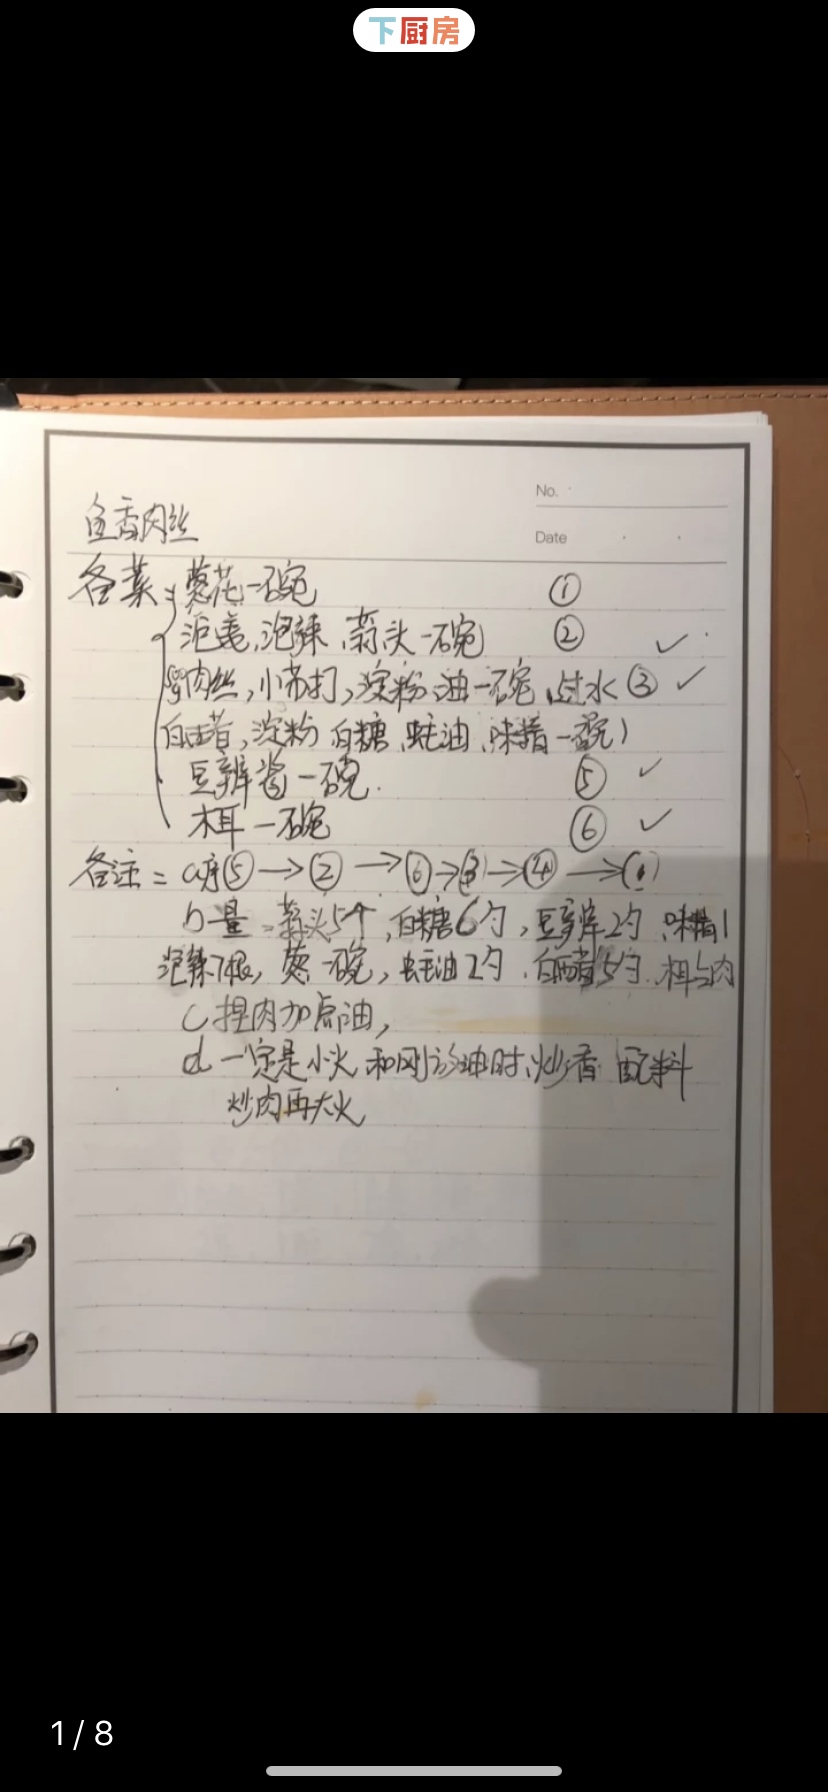 下厨房
No.
鱼香肉丝
Date
备菜: 葱花一碗 ①
泡姜,泡辣,蒜头一碗 ② ✓
肉丝,小苏打,淀粉,油一碗,过水③ ✓
白醋,淀粉 白糖 蚝油 味精一碗)
豆瓣酱一碗. ⑤ ✓
木耳一碗 ⑥ ✓
备注: a序⑤→②→⑥→③→④→①
b量: 蒜头5个,白糖6勺,豆瓣2勺,味精1
泡辣7根,葱一碗,蚝油2勺,白醋5勺
c捏肉加点油,
d一定是小火 和刚放油时,炒香 配料
炒肉再大火
1 / 8